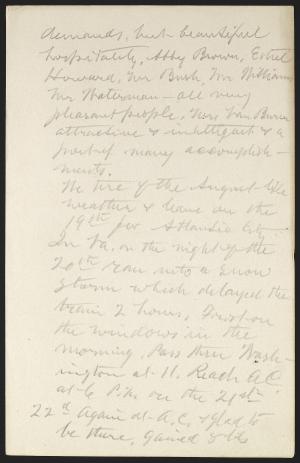 demands, but beautiful
hospitality, Abby Brown, Ethel
Howard, Mr Bush, Mr Williams
Mr Waterman - all very
pleasant people, Miss Van Buren
attractive & intelligent & a
poet of many accomplish-
ments.
We tire of the August-like
weather & leave on the
19th for Atlantic City -
In Va, on the night of the
20th ran into a snow
storm which delayed the
train 2 hours, Frost on
the windows in the
morning, Pass thru Wash-
ington at 11. Reach A.C.
at 6 P.M. on the 21st
22d Again at A.C. & glad to
be there, gained 8 lbs